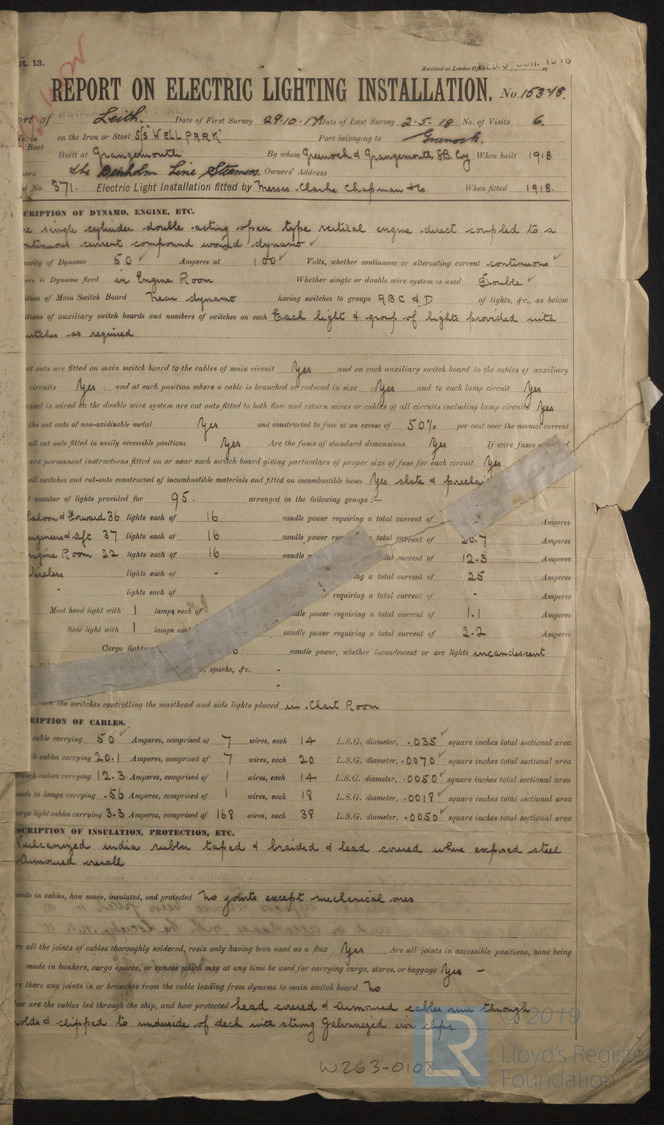 pt. 13.
Received at London Office
REPORT ON ELECTRIC LIGHTING INSTALLATION. No. 15348.
ort of Leith. Date of First Survey 29.10.17 Date of Last Survey 2-5.18 No. of Visits 6.
No. in on the Iron or Steel S/S "WELLPARK" Port belonging to Greenock.
Book
Built at Grangemouth By whom Greenock & Grangemouth S.B. Coy When built 1918
ners The Denholm Line Steamers Owners' Address
d No. 371. Electric Light Installation fitted by Messrs Clarke Chapman & Co. When fitted 1918.
CRIPTION OF DYNAMO, ENGINE, ETC.
ne single cylinder double acting open type vertical engine direct coupled to a
ntinuous current compound wound dynamo
acity of Dynamo 50 Amperes at 100 Volts, whether continuous or alternating current continuous
ere is Dynamo fixed in Engine Room Whether single or double wire system is used Double
ition of Main Switch Board near dynamo having switches to groups A B C & D of lights, &c., as below
itions of auxiliary switch boards and numbers of switches on each Each light & group of lights provided with
witches as required
ut outs are fitted on main switch board to the cables of main circuit Yes and on each auxiliary switch board to the cables of auxiliary
circuits Yes and at each position where a cable is branched or reduced in size Yes and to each lamp circuit Yes
essel is wired on the double wire system are cut outs fitted to both flow and return wires or cables of all circuits including lamp circuits Yes
the cut outs of non-oxidizable metal Yes and constructed to fuse at an excess of 50% per cent over the normal current
all cut outs fitted in easily accessible positions Yes Are the fuses of standard dimensions Yes If wire fuses
are permanent instructions fitted on or near each switch board giving particulars of proper size of fuse for each circuit Yes
all switches and cut-outs constructed of incombustible materials and fitted on incombustible bases Yes slate & porcelain
l number of lights provided for 95. arranged in the following groups :—
Saloon & Forward 36 lights each of 16 candle power requiring a total current of Amperes
ngineers & Aft 37 lights each of 16 candle power total current of 20.7 Amperes
ngine Room 22 lights each of 16 candle current of 12.3 Amperes
Wireless lights each of - ing a total current of 25 Amperes
- lights each of r requiring a total current of - Amperes
Mast head light with 1 lamps each of dle power requiring a total current of 1.1 Amperes
Side light with 1 lamps each candle power requiring a total current of 2.2 Amperes
Cargo lights candle power, whether incandescent or arc lights incandescent
, sparks, &c. -
-
are the switches controlling the masthead and side lights placed in Chart Room
RIPTION OF CABLES.
cable carrying 50 Amperes, comprised of 7 wires, each 14 L.S.G. diameter, .035 square inches total sectional area
ch cables carrying 20.1 Amperes, comprised of 7 wires, each 20 L.S.G. diameter, .0070 square inches total sectional area
ranch cables carrying 12.3 Amperes, comprised of 1 wires, each 14 L.S.G. diameter, .0050 square inches total sectional area
eads to lamps carrying .56 Amperes, comprised of 1 wires, each 18 L.S.G. diameter, .0018 square inches total sectional area
argo light cables carrying 3.3 Amperes, comprised of 168 wires, each 38 L.S.G. diameter, .0050 square inches total sectional area
SCRIPTION OF INSULATION, PROTECTION, ETC.
Vulcanized india rubber taped & braided & lead covered where exposed steel
armoured overall
oints in cables, how made, insulated, and protected No joints except mechanical ones
re all the joints of cables thoroughly soldered, resin only having been used as a flux Yes Are all joints in accessible positions, none being
made in bunkers, cargo spaces, or spaces which may at any time be used for carrying cargo, stores, or baggage Yes -
re there any joints in or branches from the cable leading from dynamo to main switch board No
ow are the cables led through the ship, and how protected Lead covered & armoured cables run through
holds & clipped to underside of deck with strong Galvanized iron clips.
W263-0108
LR
© 2019
Lloyd's Register
Foundation